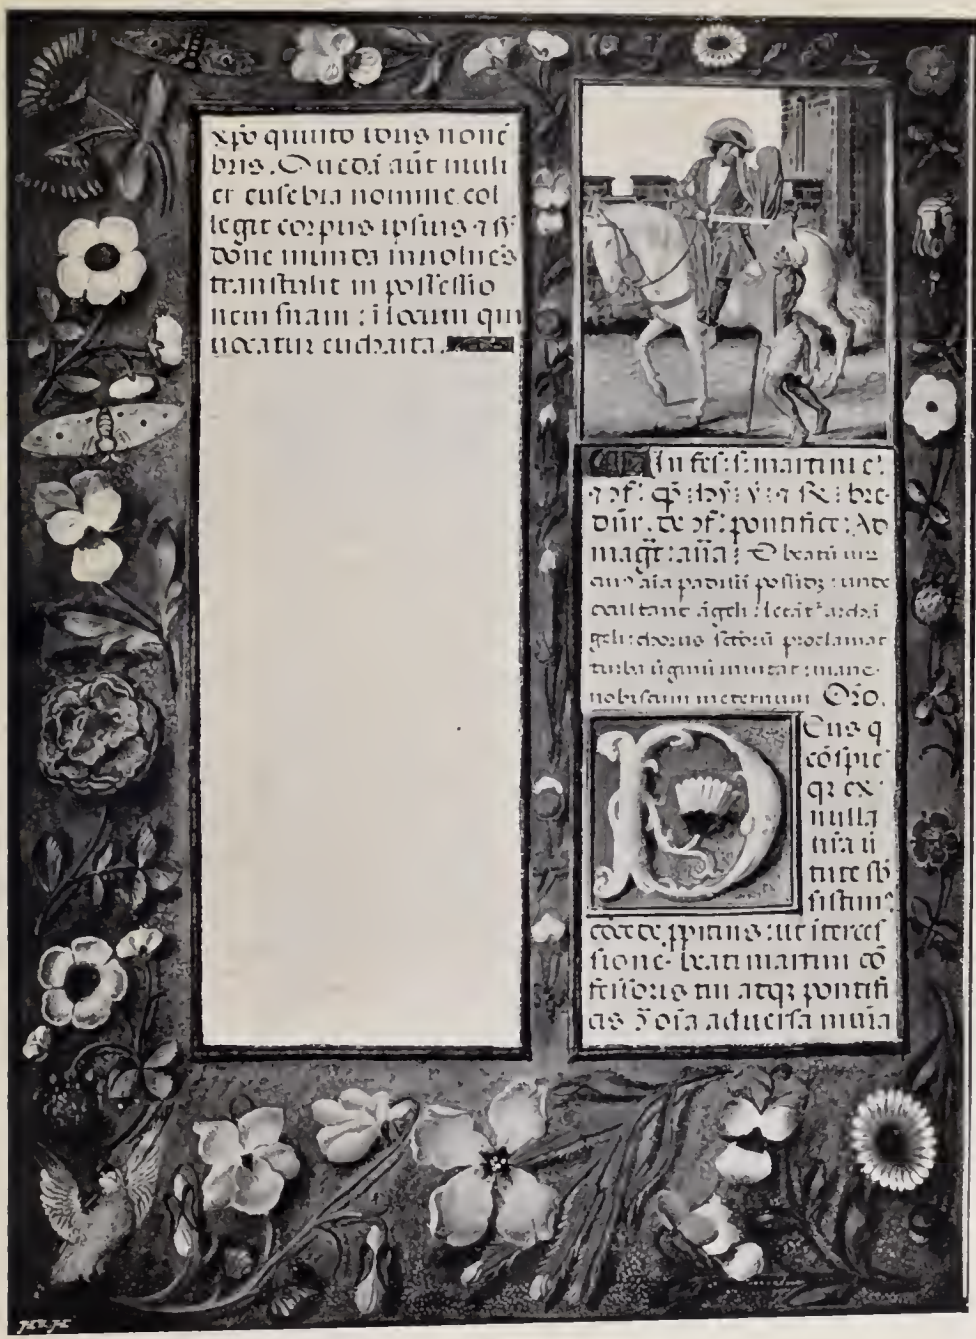 xp̄o quinto idus nouē
bris. Quedā aūt muli
er eusebia nomine col
legit corpus ipsius ⁊
munda inuoluēs
transtulit in possessio
nem suam : ī locum qui
uocatur euchaita.
In fes. s. martini e.
pontifice : Ad
magt : aña : O beatū uir
cui⁹ aīa paradisū possidꝫ : unde
exultant āgeli : letāt᷑ archā
geli : chorus sctōrū proclamat
turba ūginū inuitat : mane
nobiscum in eternum Oro.
Deus q
cōspic
qꝛ ex
nulla
nr̄a ū
tute sb
sistim⁹
cōcede ppitius : ut īterces
sione beati martini cō
fessoris tui atqꝫ pontifi
cis oīa aduersa muīa